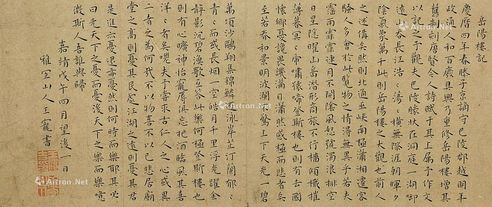 岳陽樓記
慶曆四年春滕子京謫守巴陵郡越明年
政通人和百廢具興乃重修岳陽樓增其
舊制刻唐賢今人詩賦于其上屬予作文
以記之予觀夫巴陵勝狀在洞庭一湖銜
遠吞長江浩浩湯湯橫無際涯朝暉夕
陰氣象萬千此則岳陽樓之大觀也前人
之述備矣然則北通巫峽南極瀟湘遷客
騷人多會於此覽物之情得無異乎若夫
霪雨霏霏連月不開陰風怒號濁浪排空
日星隱曜山岳潛形商旅不行檣傾楫摧
薄暮冥冥虎嘯猿啼登斯樓也則有去國
懷鄉憂讒畏譏滿目蕭然感極而悲者矣
至若春和景明波瀾不驚上下天光一碧
萬頃沙鷗翔集錦鱗游泳岸芷汀蘭郁郁
青青而或長烟一空皓月千里浮光躍金
靜影沉璧漁歌互答此樂何極登斯樓也
則有心曠神怡寵辱偕忘把酒臨風其喜
洋洋者矣嗟夫予嘗求古仁人之心或異
二者之為何哉不以物喜不以己悲居廟
堂之高則憂其民處江湖之遠則憂其君
是進亦憂退亦憂然則何時而樂耶其必
曰先天下之憂而憂後天下之樂而樂乎
微斯人吾誰與歸
嘉靖戊午四月望後一日
雅宜山人王寵書
Artron.Net